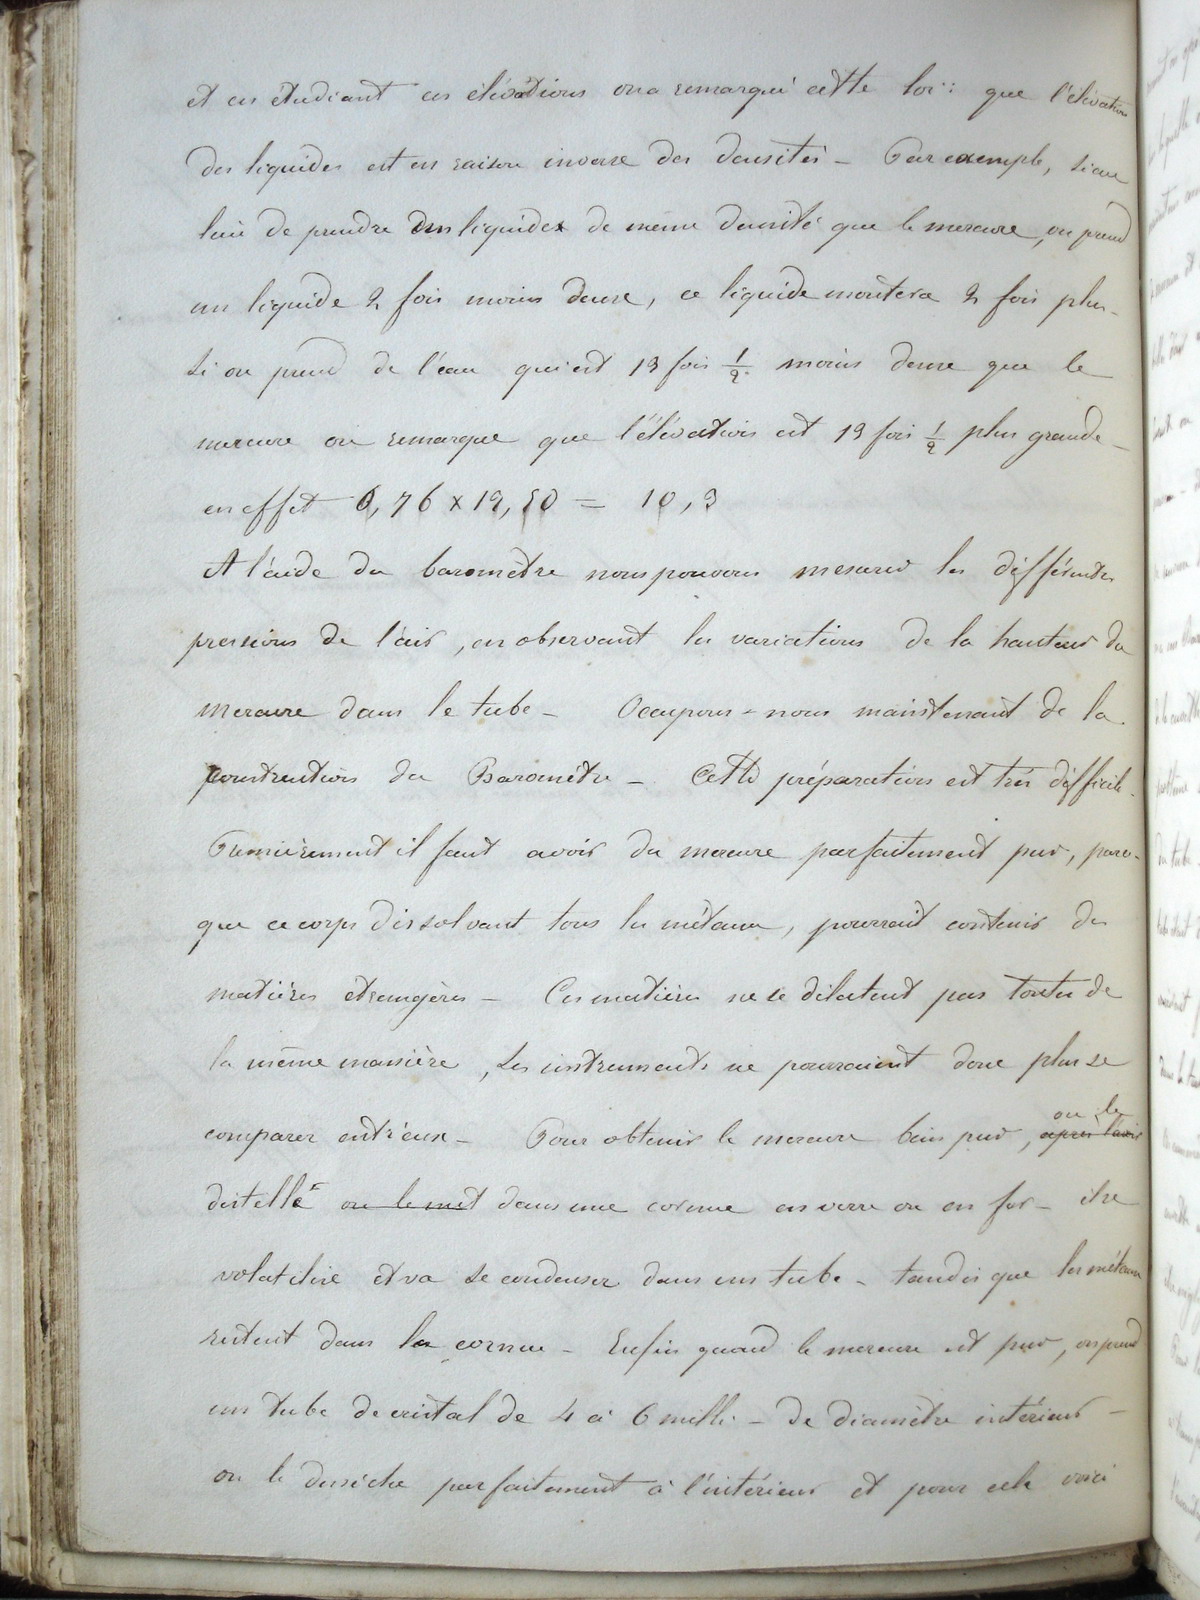 et en étudiant ces élévations on a remarqué cette loi : que l'élévation
des liquides est en raison inverse des densités - Par exemple, si au
lieu de prendre des liquides de même densité que le mercure, on prend
un liquide 2 fois moins dense, ce liquide montera 2 fois plus -
si on prend de l'eau qui est 13 fois 1/2 moins dense que le
mercure on remarque que l'élévation est 13 fois 1/2 plus grande -
en effet 0,76 x 13,50 = 10,3
A l'aide du baromètre nous pouvons mesurer les différentes
pressions de l'air, en observant les variations de la hauteur du
mercure dans le tube - Occupons-nous maintenant de la
construction du Baromètre - Cette préparation est très difficile -
Premièrement il faut avoir du mercure parfaitement pur, parce-
que ce corps dissolvant tous les métaux, pourrait contenir des
matières étrangères - Ces matières ne se dilatent pas toutes de
la même manière, les instruments ne pourraient donc plus se
comparer entr'eux - Pour obtenir le mercure bien pur, après l'avoir on le
distillé on le met dans une cornue en verre ou en fer - il se
volatilise et va se condenser dans un tube - tandis que les métaux
restent dans la cornue - Enfin quand le mercure est pur, on prend
un tube de cristal de 4 à 6 milli - de diamètre intérieur -
on le dessèche parfaitement à l'intérieur et pour cela voici